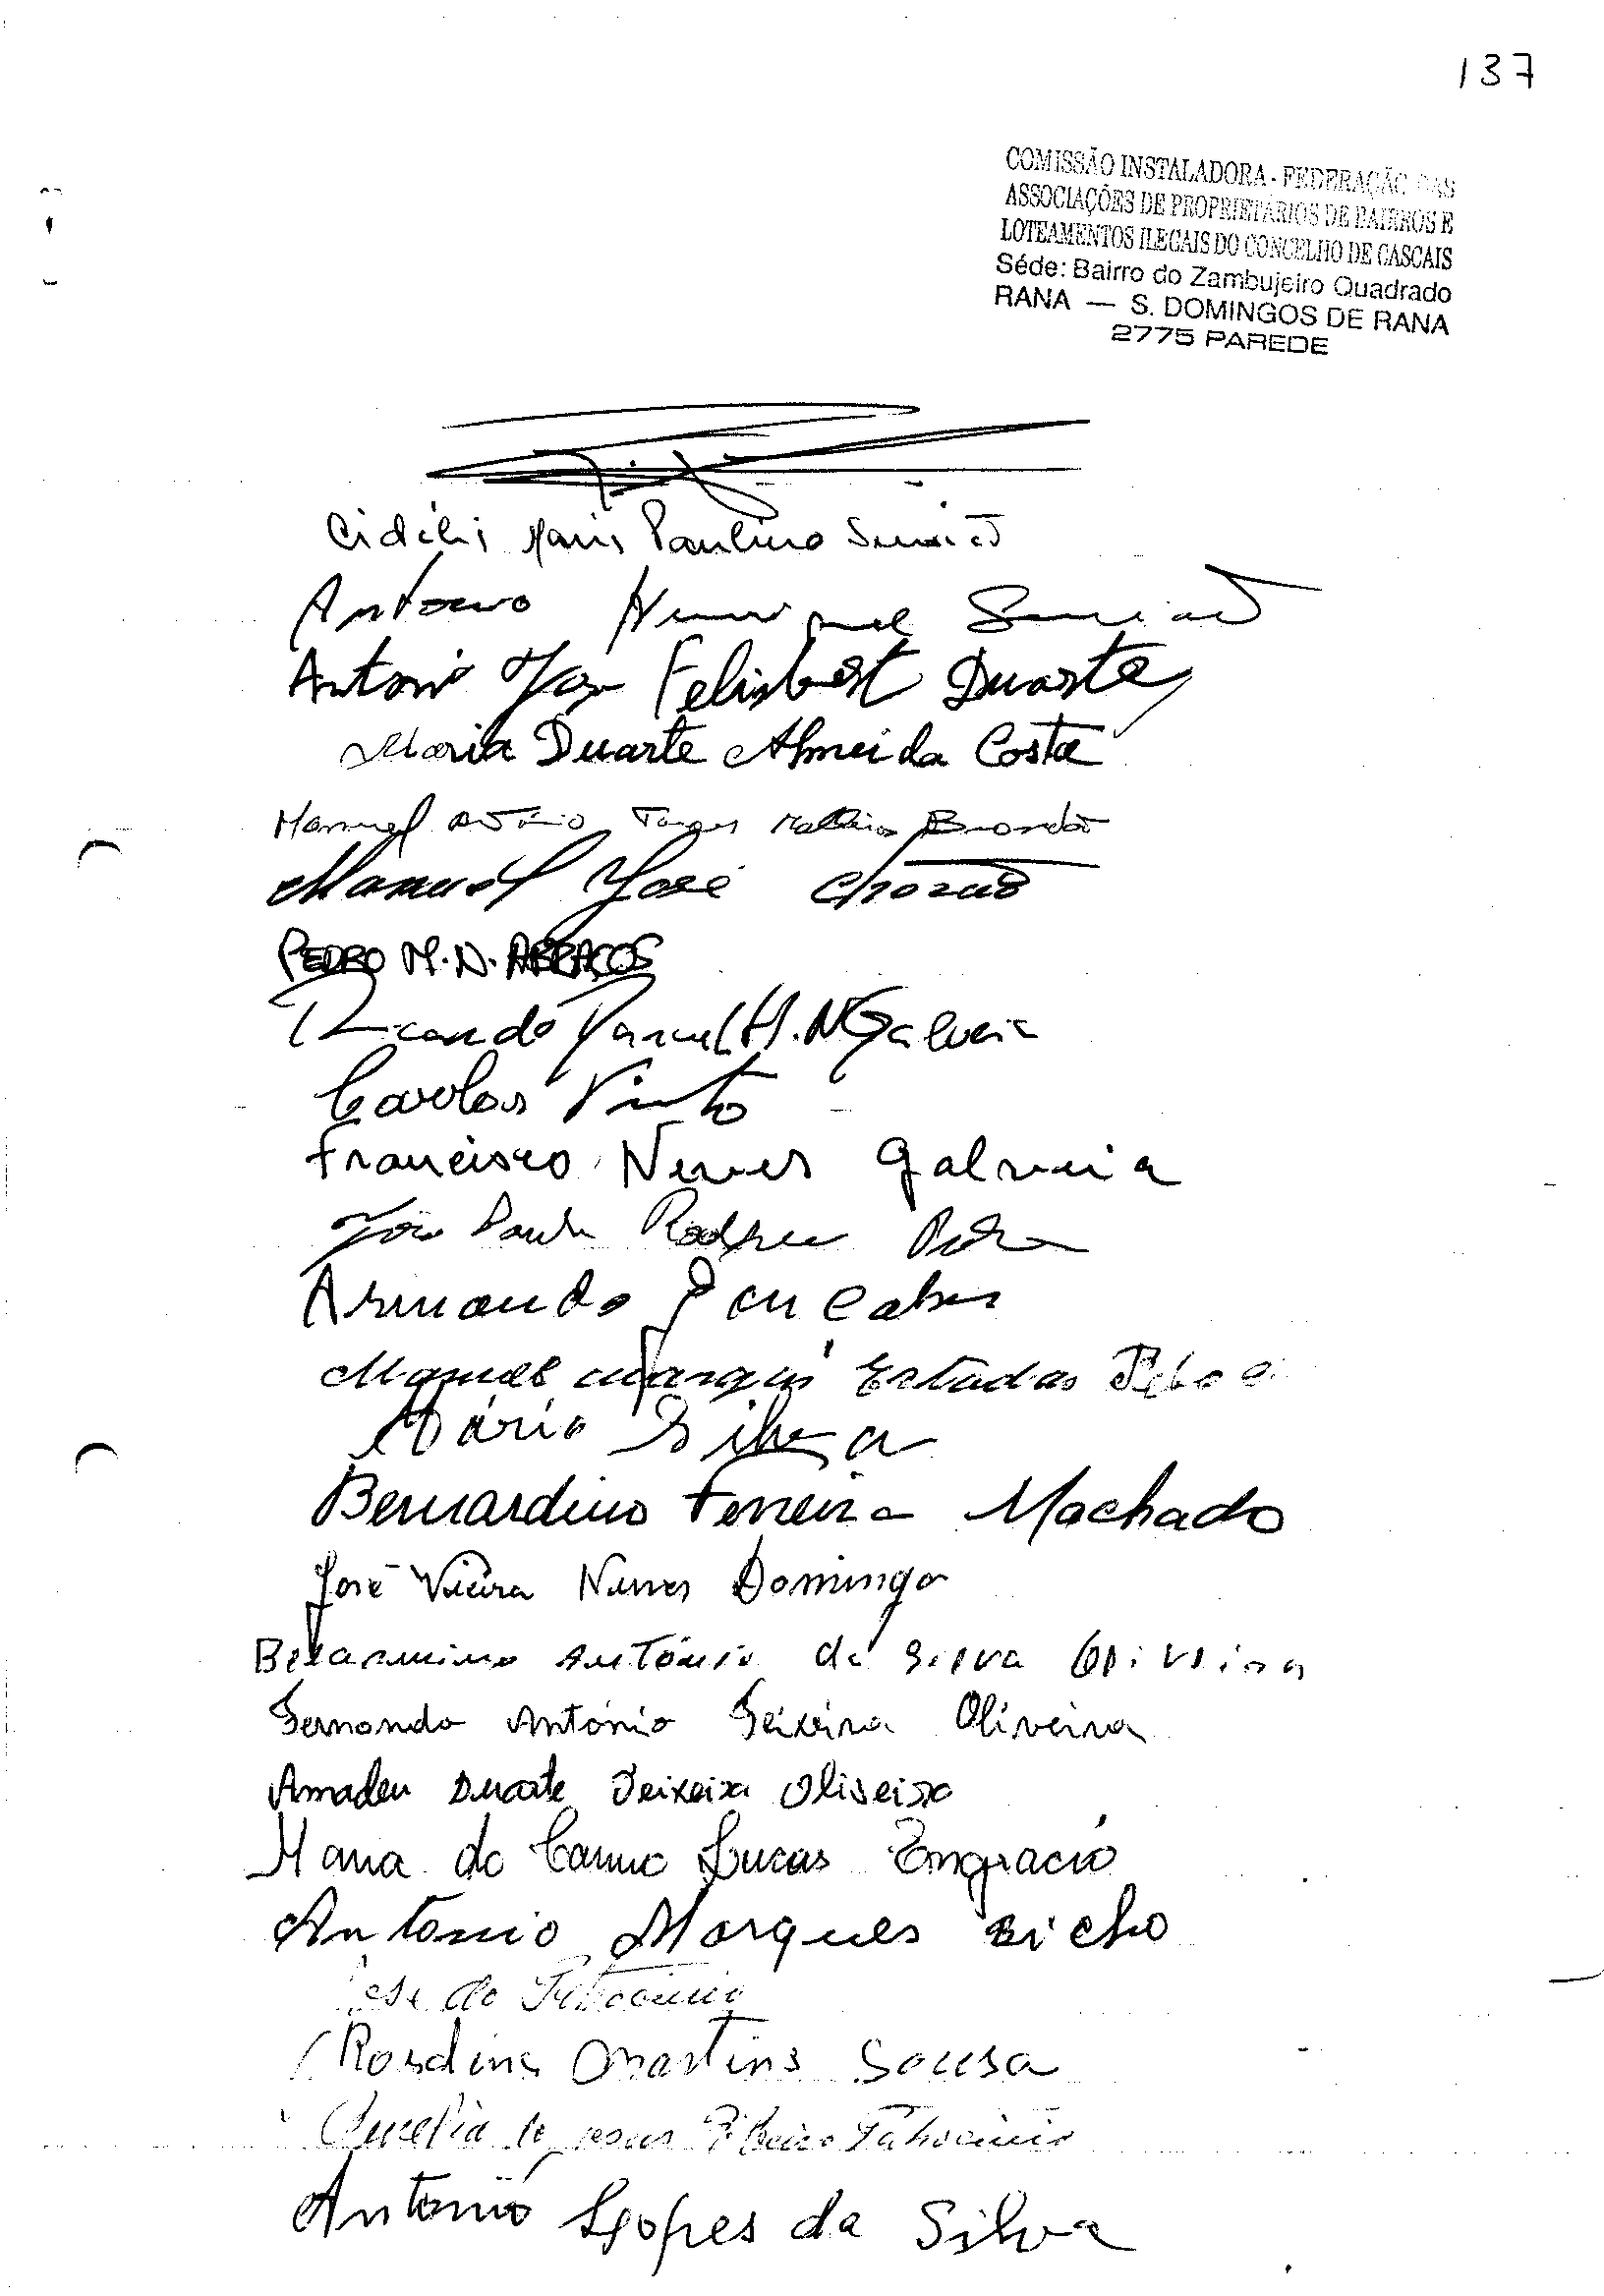 137
COMISSÃO INSTALADORA - FEDERAÇÃO DAS
ASSOCIAÇÕES DE PROPRIETÁRIOS DE BAIRROS E
LOTEAMENTOS ILEGAIS DO CONCELHO DE CASCAIS
Séde: Bairro do Zambujeiro Quadrado
RANA — S. DOMINGOS DE RANA
2775 PAREDE
Maria Paulino
Antonio Henrique
Antonio José Felisbert Duarte
Maria Duarte Almeida Costa
Manuel Brandão
Manuel José
PEDRO M. N. ABRAÇOS
Ricardo Manuel H. N Galveia
Carlos Pinto
Francisco Neves Galveia
João Paulo
Armando Gonçalves
Manuel Marques
Mário Silva
Bernardino Ferreira Machado
José Vieira Nunes Domingo
Belarmino António da Silva Oliveira
Fernando António Teixeira Oliveira
Amadeu Duarte Teixeira Oliveira
Maria do Carmo Lucas Engracio
Antonio Marques Bicho
do
Rosalina Martins Sousa
Aurelia de Jesus Ribeiro
Antonio Lopes da Silva